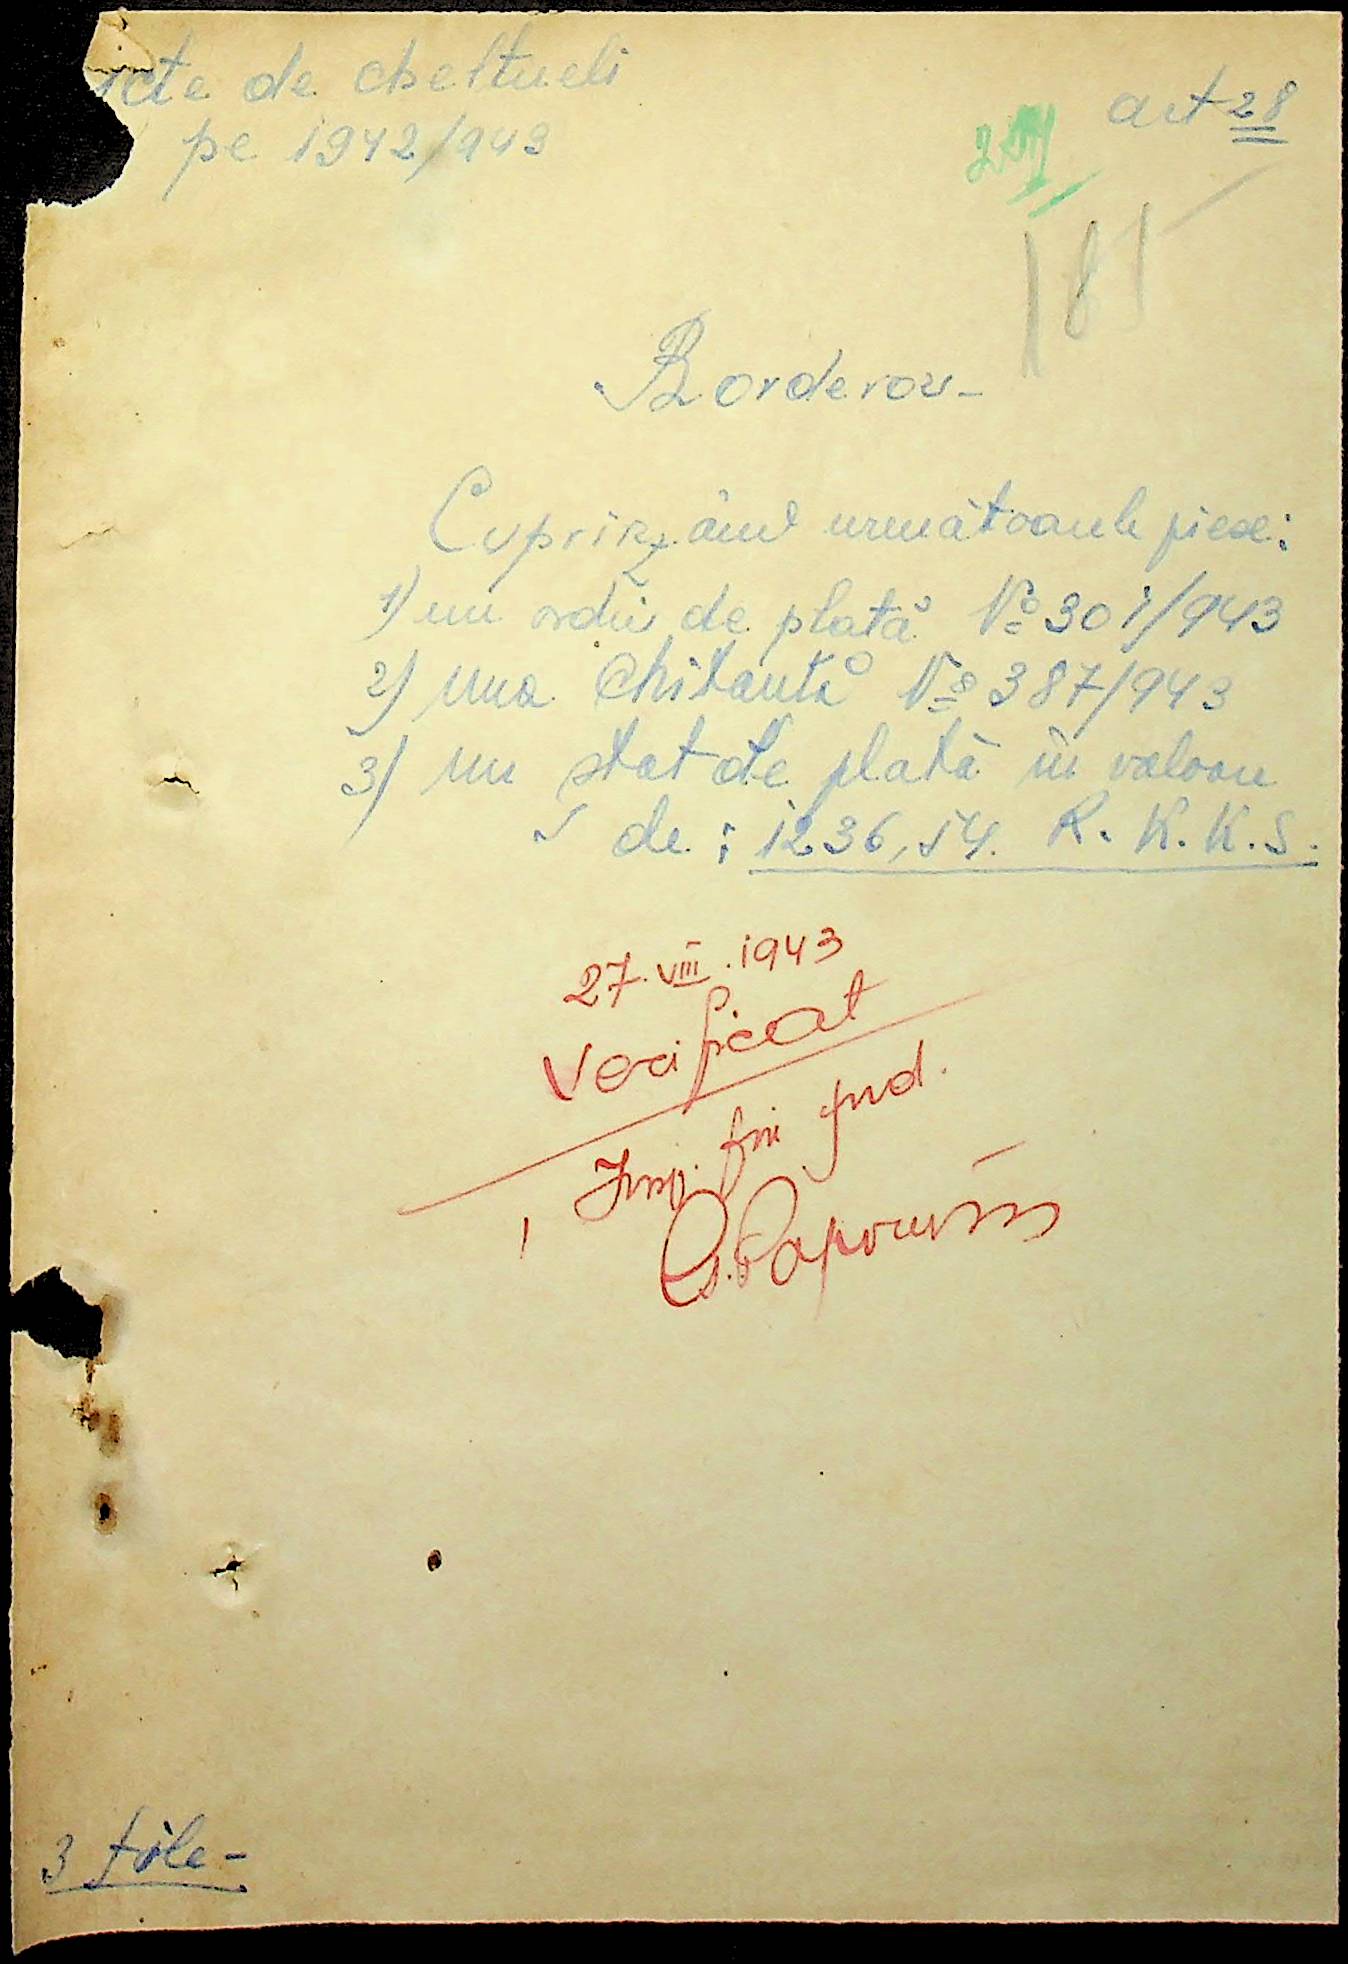 acte de cheltueli
pe 1942/943
art 28
181
Borderou-
Cuprinzând următoarele piese:
1) un ordin de plată Nº 301/943
2) una Chitantă Nº 387/943
3) un stat de plată în valoare
de: 1236,54. R.K.K.S.
27.VIII.1943
Verificat
3 file-